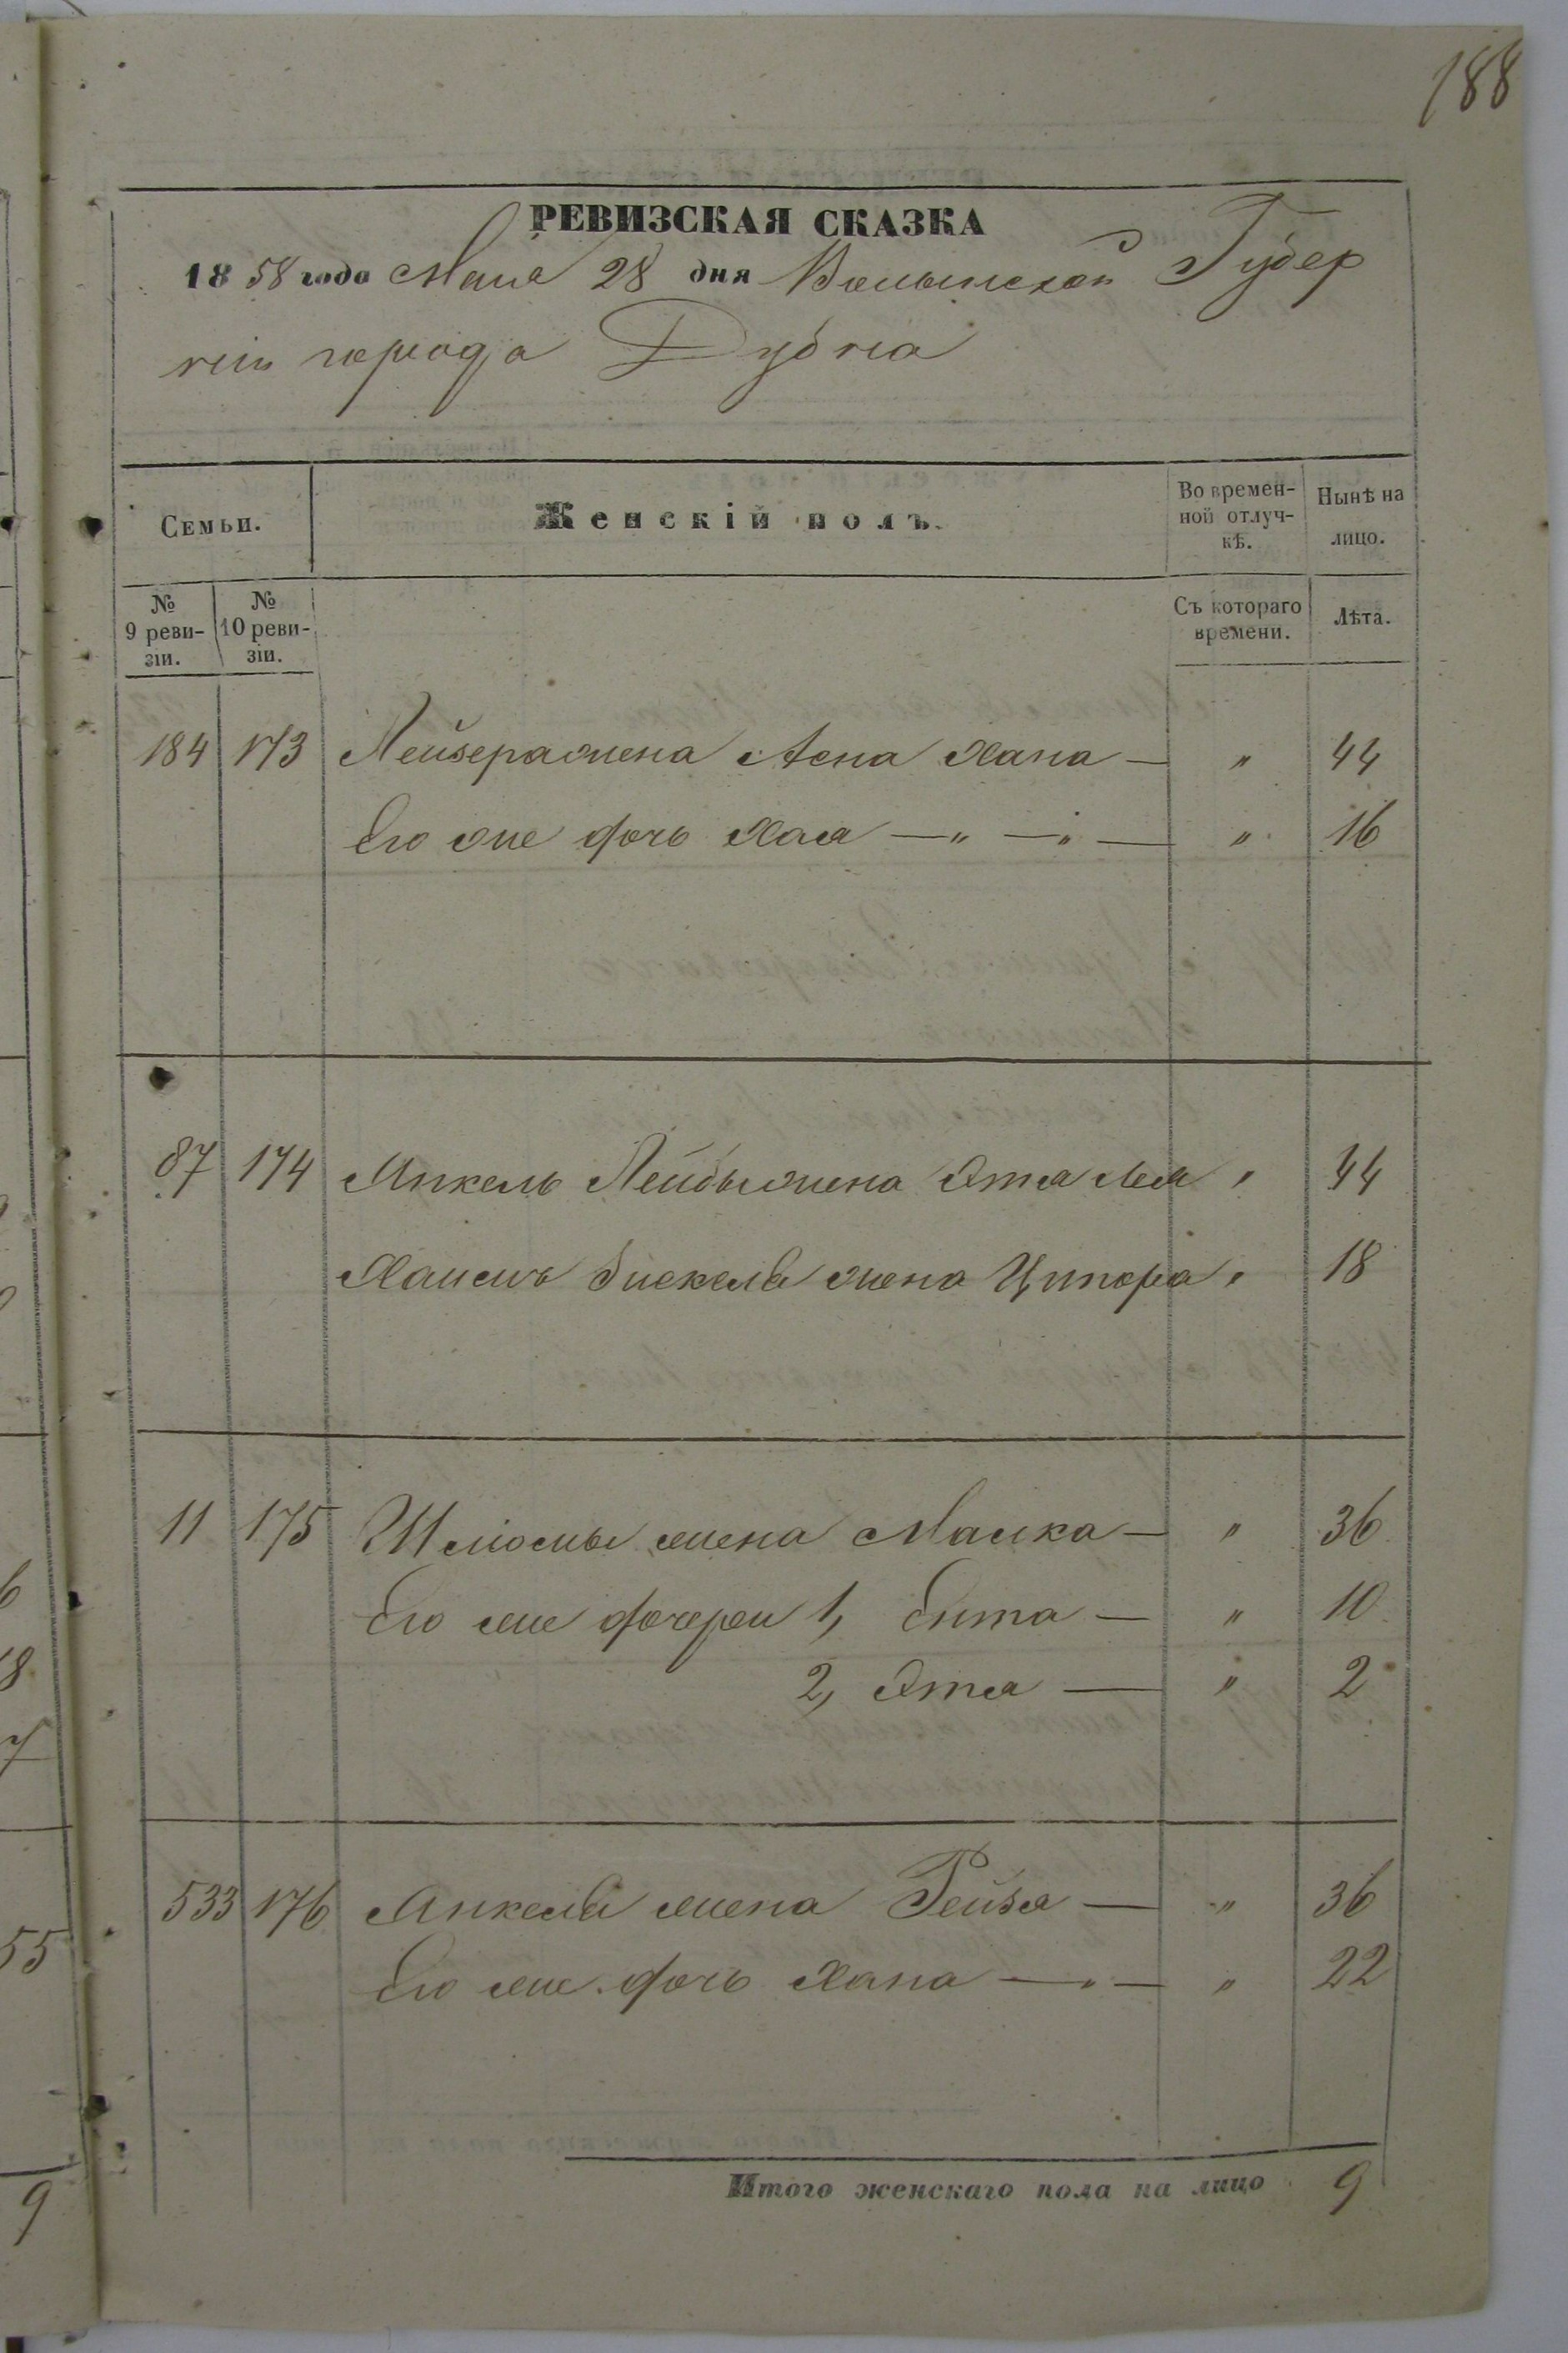 188
РЕВИЗСКАЯ СКАЗКА
1858 года Мая 28 дня Волынской Губер
нiи города Дубна
Семьи.
Женскiй полъ.
Во времен-
ной отлуч-
кѣ.
Нынѣ на
лицо.
№
9 реви-
зiи.
№
10 реви-
зiи.
Съ котораго
времени.
Лѣта.
184 173 Лейзера жена Асна Хана — " 44
Его же дочь Хая — " — " — " 16
87 174 Янкель Лейбы жена Эта Лея " 44
Хаимъ жена Ципора " 18
11 175 Шліомы жена Малка — " 36
Его же дочери 1, Ента — " 10
2, Этя — " 2
533 176 Янкеля жена Рейзя — " 36
Его же дочь Хана — " — " 22
Итого женскаго пола на лицо 9
6
18
7
55
9